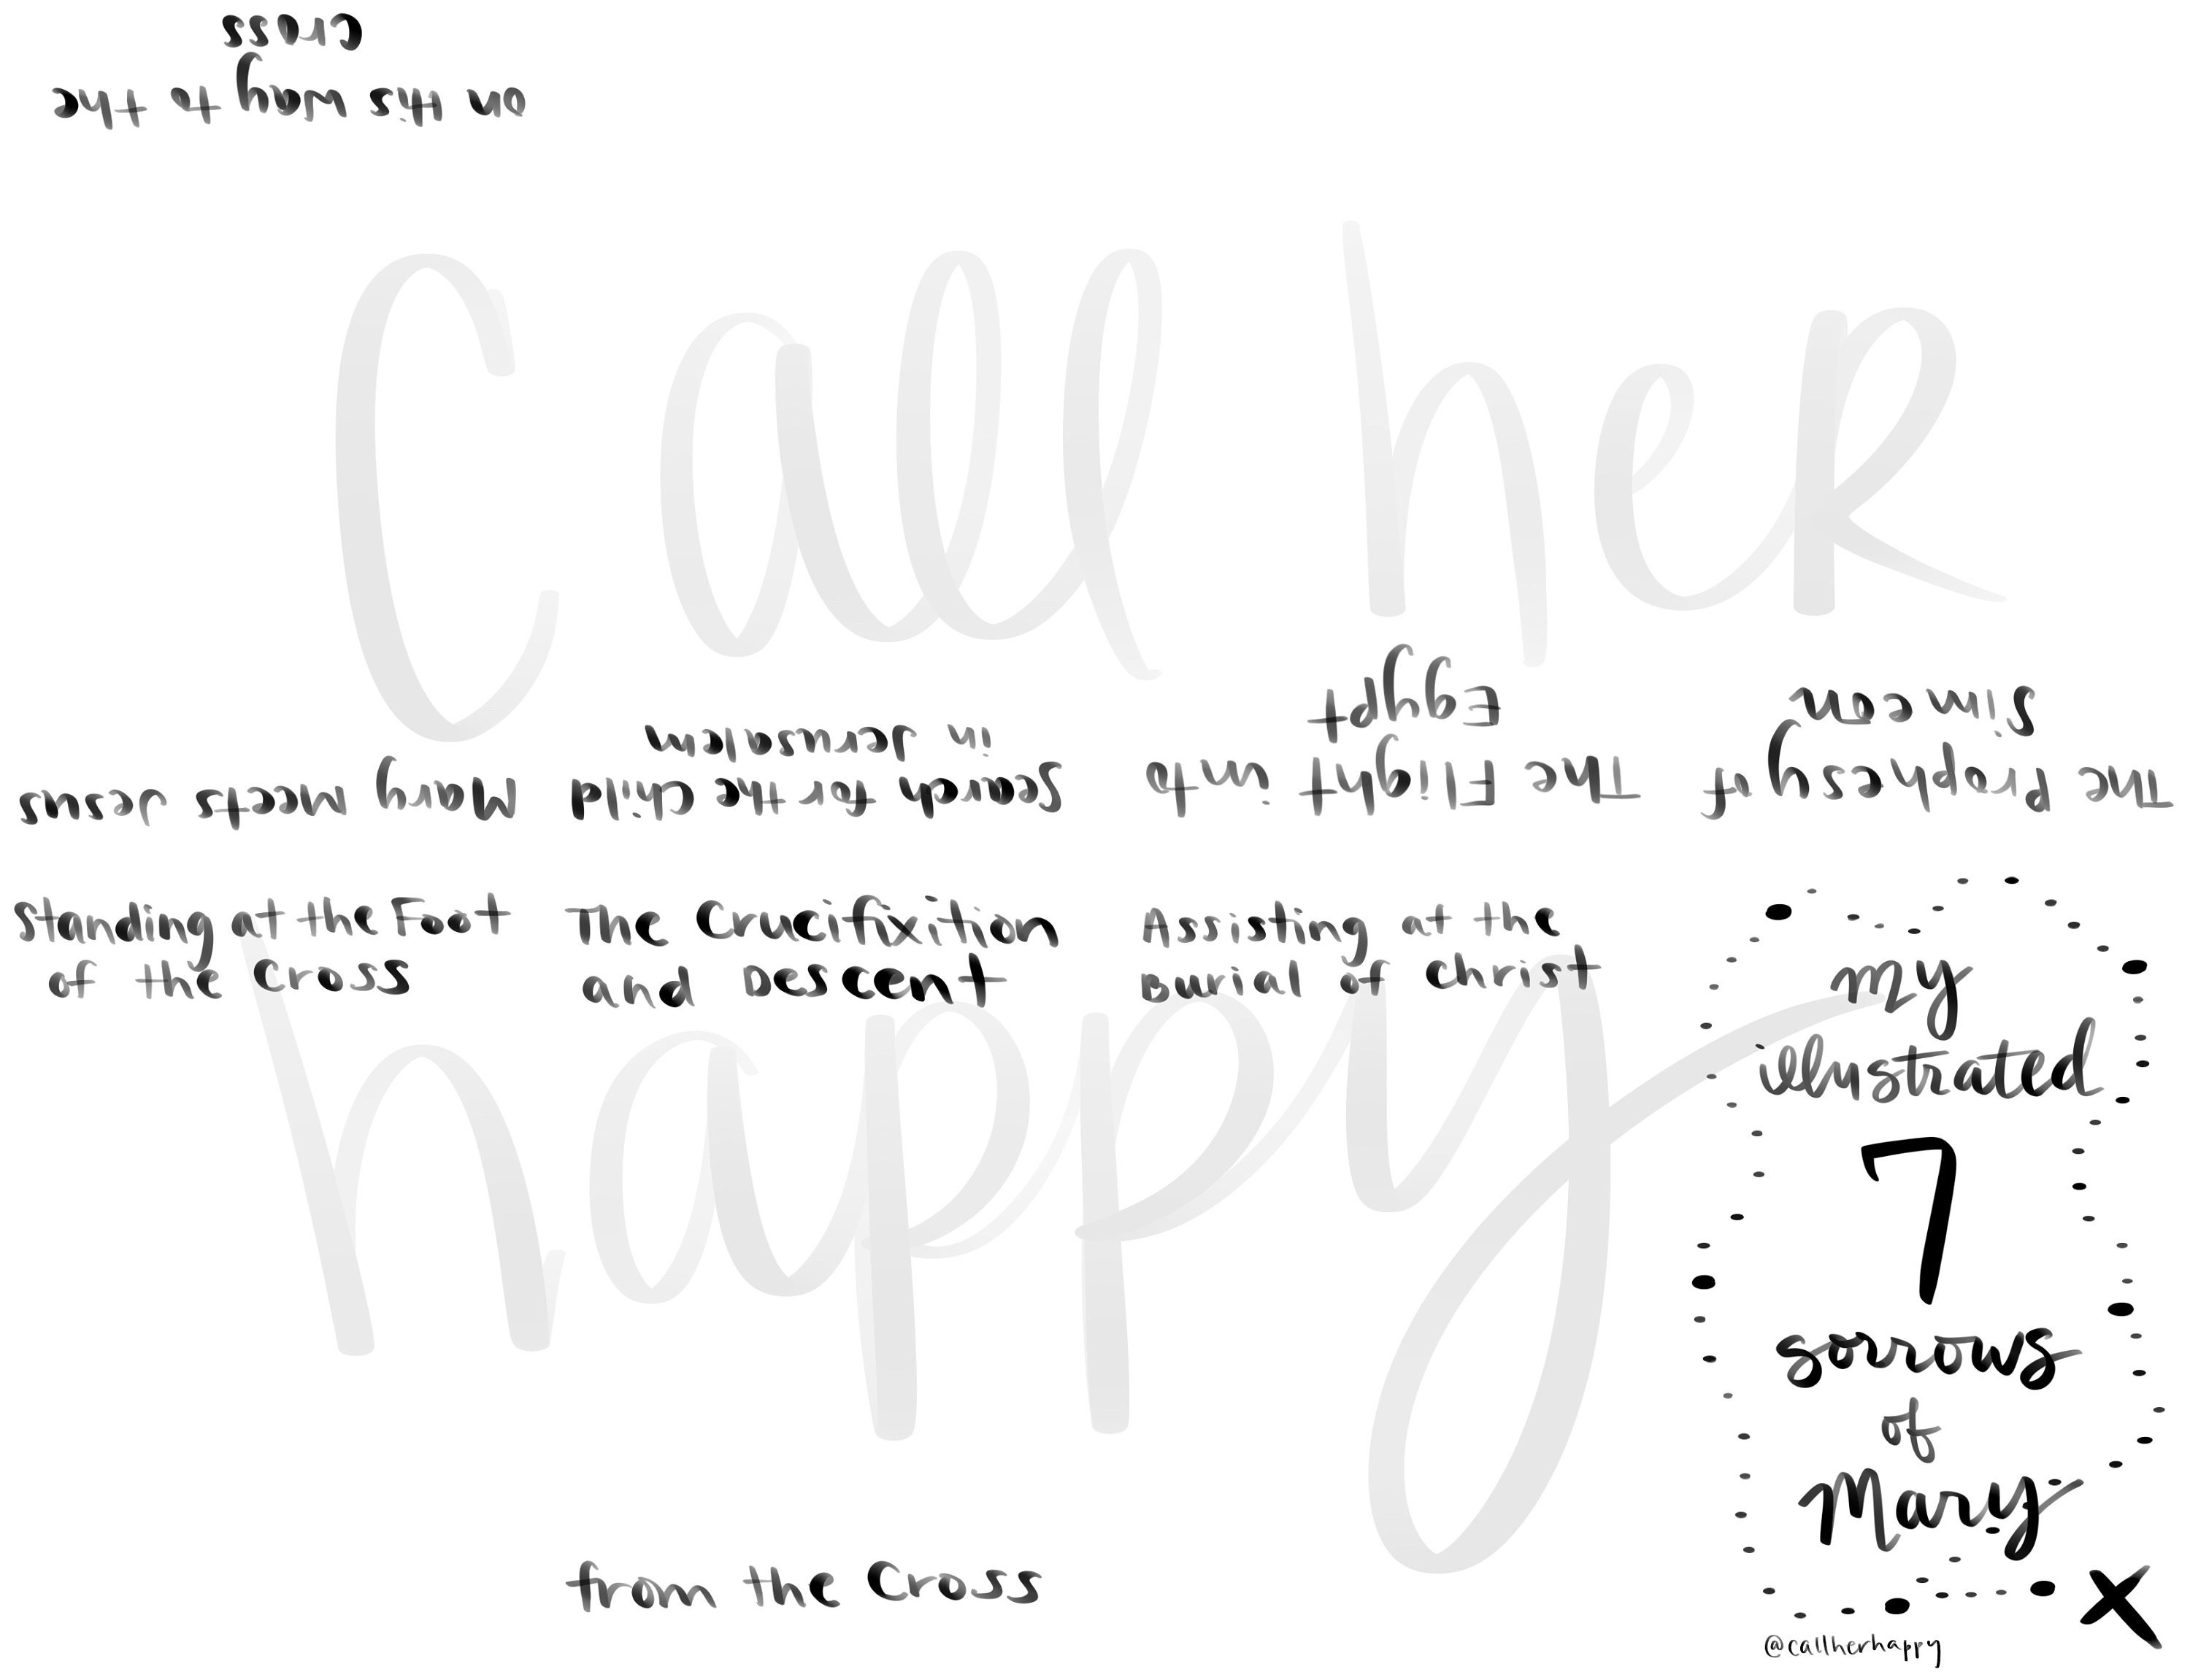 on His way to the
cross
Call her
happy
The Prophesy of
Simeon
The Flight into
Egypt
Search for the child
in Jerusalem
Mary Meets Jesus
Standing at the Foot
of the Cross
The Crucifixition
and Descent
from the Cross
Assisting at the
Burial of Christ
my
illustrated
7
sorrows
of
Mary
x
@callherhappy